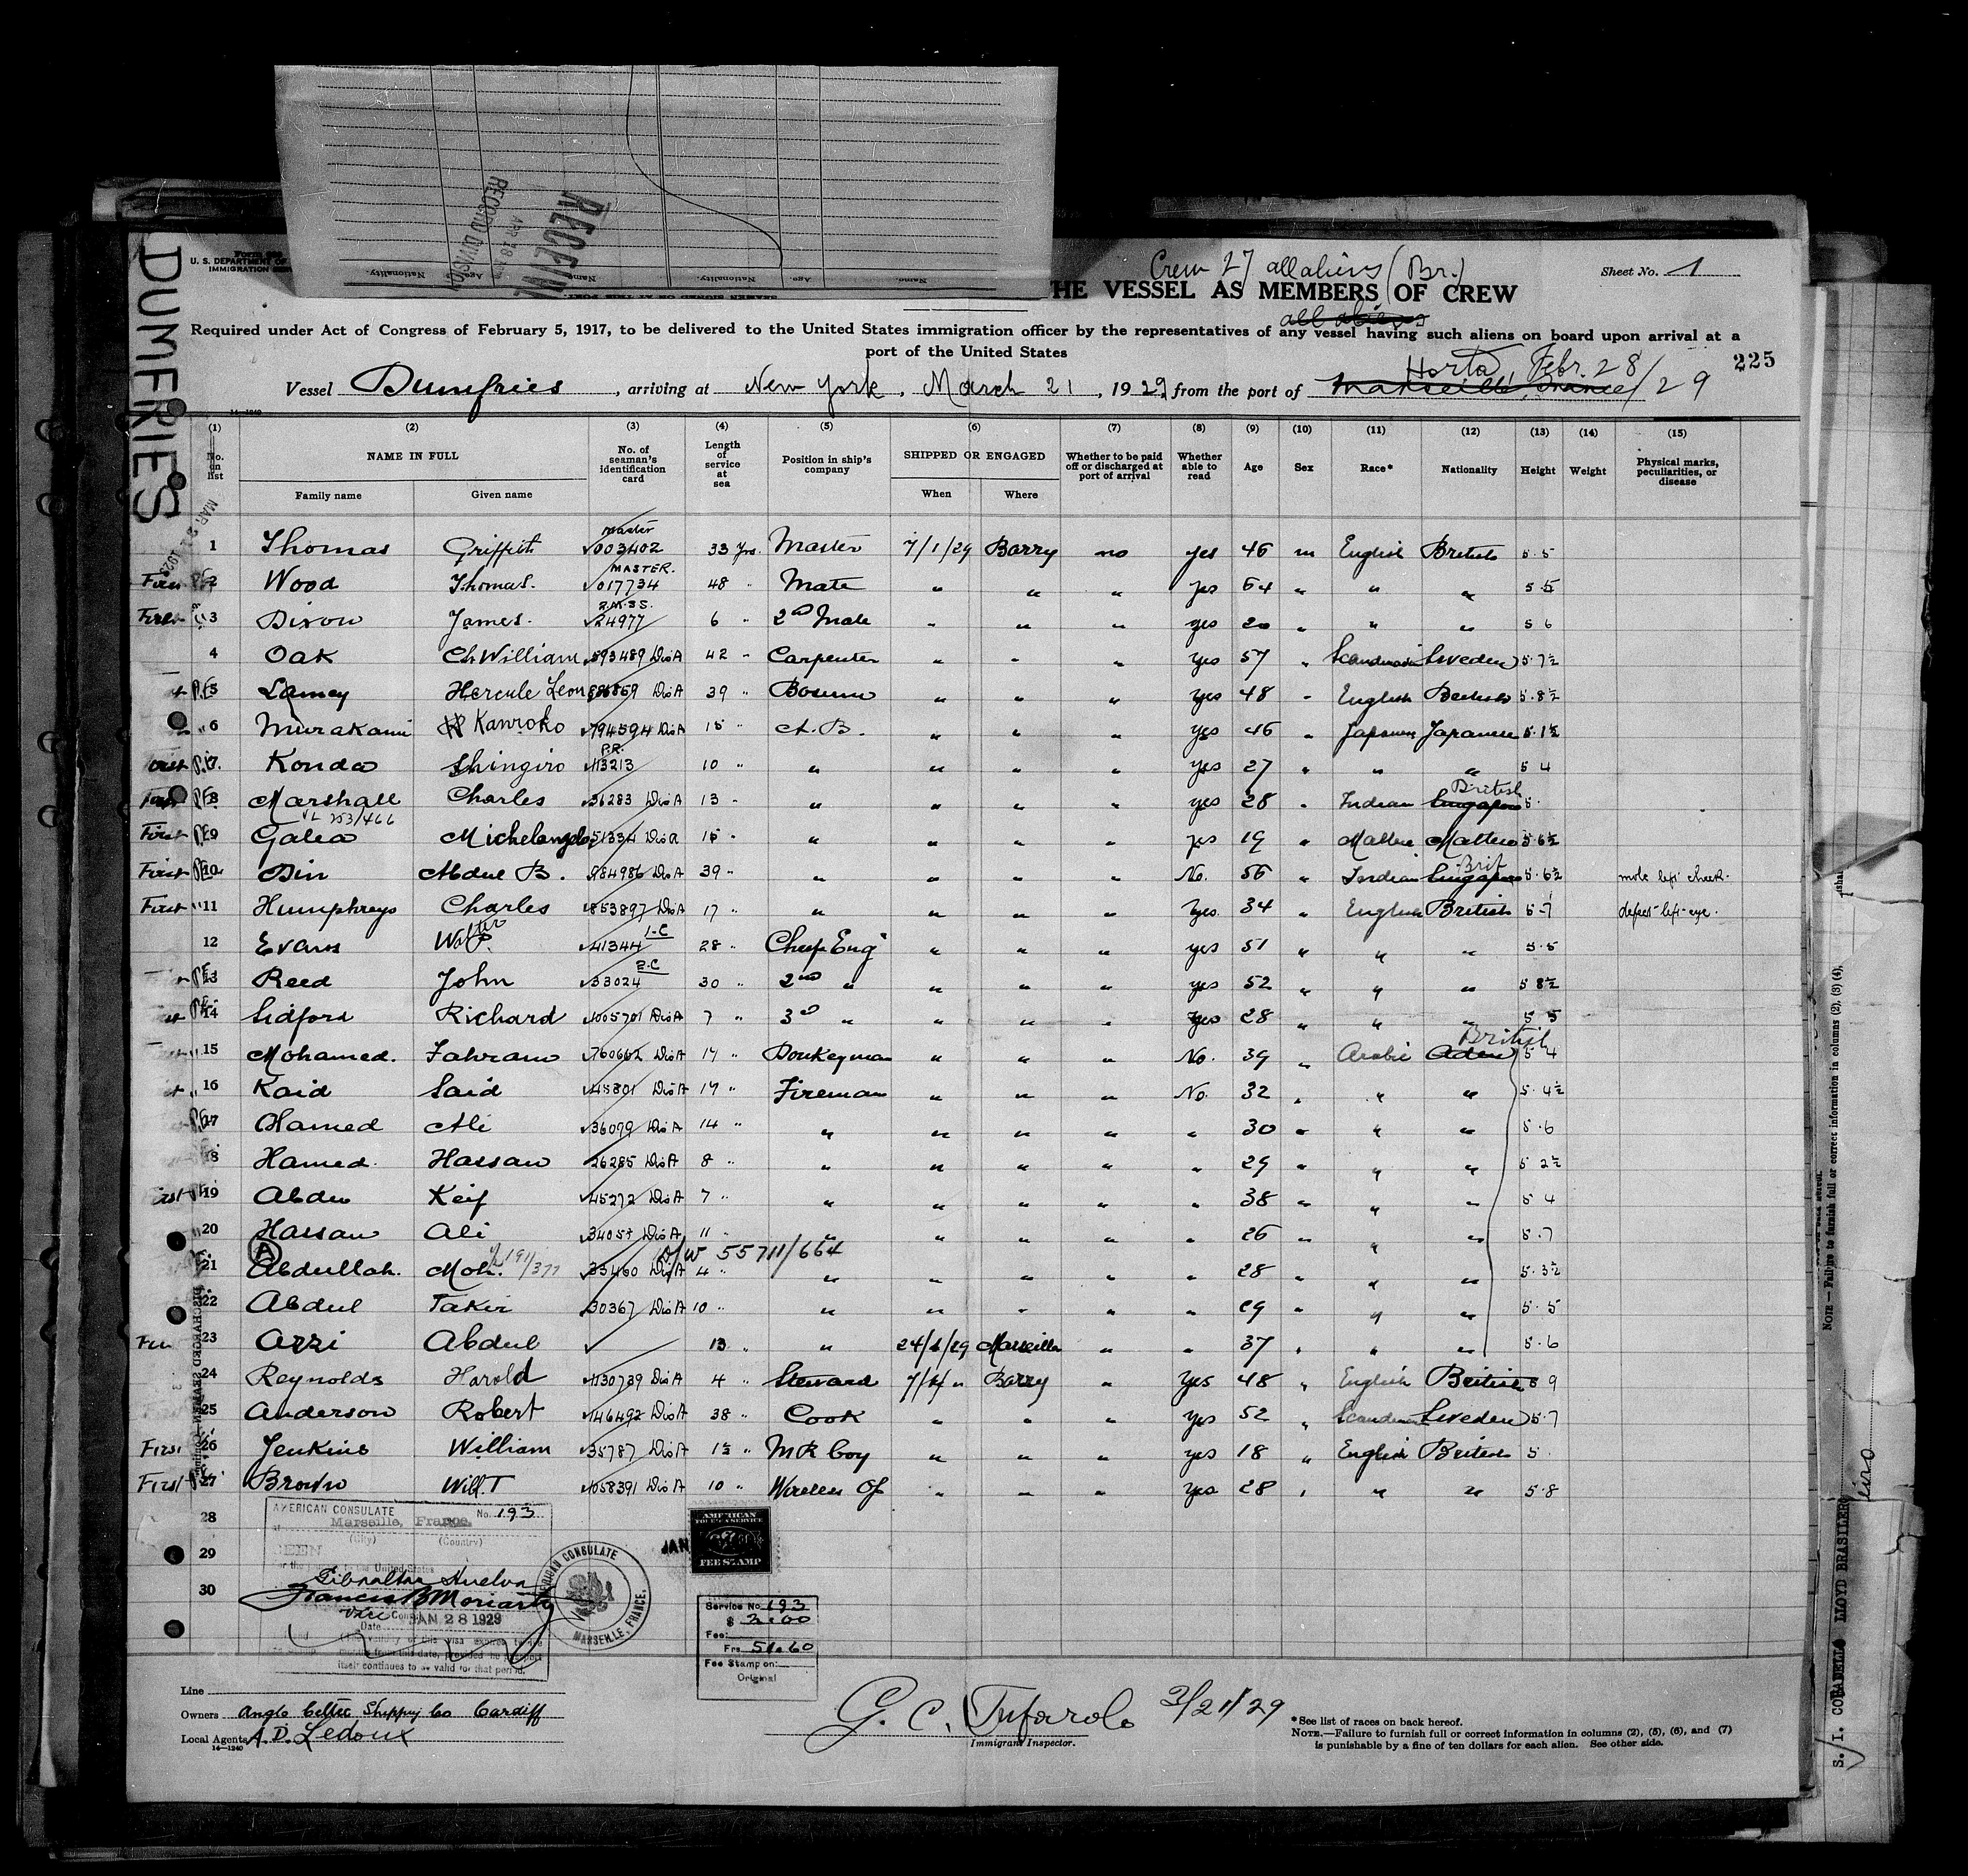 DUMFRIES
RECEIVED
RECORD DIVISION
Name. Age. Nationality. Name. Age. Nationality.
U. S. DEPARTMENT OF
IMMIGRATION
Crew 27 all aliens (Br.)
Sheet No. 1
HE VESSEL AS MEMBERS OF CREW
all aliens
Required under Act of Congress of February 5, 1917, to be delivered to the United States immigration officer by the representatives of any vessel having such aliens on board upon arrival at a
port of the United States
225
Horta, Febr. 28/29
Vessel Dumfries, arriving at New York, March 21, 1929, from the port of Marseille, France
14—1240
(1) (2) (3) (4) (5) (6) (7) (8) (9) (10) (11) (12) (13) (14) (15)
No. on list NAME IN FULL No. of seaman's identification card Length of service at sea Position in ship's company SHIPPED OR ENGAGED Whether to be paid off or discharged at port of arrival Whether able to read Age Sex Race* Nationality Height Weight Physical marks, peculiarities, or disease
Family name Given name When Where
1 Thomas Griffith master 003402 33 Yrs. Master 7/1/29 Barry no yes 46 m English British 5.5
First 2 Wood Thomas. MASTER. 017734 48 " Mate " " " yes 64 " " " 5.5
First 3 Dixon James. 24977 6 " 2nd Mate " " " yes 20 " " " 5 6
4 Oak Ch William 593489 Dis A 42 " Carpenter " " " yes 57 " Sweden 5.7½
5 Lamey Hercule Leon Dis A 39 " Bosun " " " yes 48 " English British 5.8½
6 Murakami Kanroko 794594 Dis A 15 " A.B. " " " yes 46 " Japanese Japanese 5.1½
7 Kondo Shingiro P.R. 113213 10 " " " " " yes 27 " " " 5 4
8 Marshall Charles 36283 Dis A 13 " " " " " yes 28 " Indian Singapore British 5.
253/466
First 9 Galea Michelangelo 51334 Dis A 15 " " " " " yes 19 " Maltese Maltese 5.6½
First 10 Din Abdul B. 984986 Dis A 39 " " " " " No. 56 " Indian Singapore Brit 5.6½ mole left cheek.
First 11 Humphreys Charles 853897 Dis A 17 " " " " " Yes. 34 " English British 5.7 defect left eye.
12 Evans Walter P. 1-C 41344 28 " Chief Eng " " " yes 51 " " " 5.5
13 Reed John 2.C 33024 30 " 2nd " " " " yes 52 " " " 5 8½
14 Sidford Richard 1005701 Dis A 7 " 3d " " " " yes 28 " " " 5 5
15 Mohamed. Fahrano 760662 Dis A 17 " Donkeyman " " " No. 39 " Arabic Aden British 5 4
16 Kaid Said 45801 Dis A 17 " Fireman " " " No. 32 " " " 5.4½
17 Hamed Ali 36079 Dis A 14 " " " " " " 30 " " " 5.6
18 Hamed. Hassan 26285 Dis A 8 " " " " " " 29 " " " 5 2½
First 19 Abdu Keif 45272 Dis A 7 " " " " " " 38 " " " 5 4
20 Hassan Ali 34057 Dis A 11 " " " " " " 26 " " " 5.7
A 191/377 55711/664
21 Abdullah. Moh. 33460 Dis A 4 " " " " " " 28 " " " 5.3½
22 Abdul Takir 30367 Dis A 10 " " " " " " 29 " " " 5.5
23 Azzi Abdul 13 " " 24/1/29 Marseille " " 37 " " " 5.6
24 Reynolds Harold 1130739 Dis A 4 " Steward 7/1/ " Barry " Yes 48 " English British 5 9
25 Anderson Robert 146492 Dis A 38 " Cook " " " yes 52 " Sweden 5.7
First 26 Jenkins William 35787 Dis A 1½ " M R boy " " " yes 18 " English British 5.
First 27 Brown Will. T 1058391 Dis A 10 " Wireless Of " " " yes 28 " " " 5.8
28
29
30
DISCHARGED SEAMEN
AMERICAN CONSULATE No. 193
Marseille, France.
(City) (Country)
SEEN
United States
Gibraltar Huelva
Francis B Moriarty
Vice Consul
JAN 28 1929
Date
The validity of this visa expires twelve
months from this date, provided the passport
itself continues to be valid for that period.
AMERICAN CONSULATE
MARSEILLE, FRANCE.
JAN
AMERICAN FOREIGN SERVICE
FEE STAMP
Service No. 193
$ 2.00
Fee:
Frs. 51.60
Fee Stamp on:
Original
Line
Owners Anglo Celtic Shippg Co Cardiff
Local Agents A. D. Ledoux
14—1240
G. C. Tufarolo 3/21/29
Immigrant Inspector.
*See list of races on back hereof.
NOTE.—Failure to furnish full or correct information in columns (2), (5), (6), and (7)
is punishable by a fine of ten dollars for each alien. See other side.
NOTE — Failure to furnish full or correct information in columns (2), (3) (4),
LLOYD BRASILEIRO